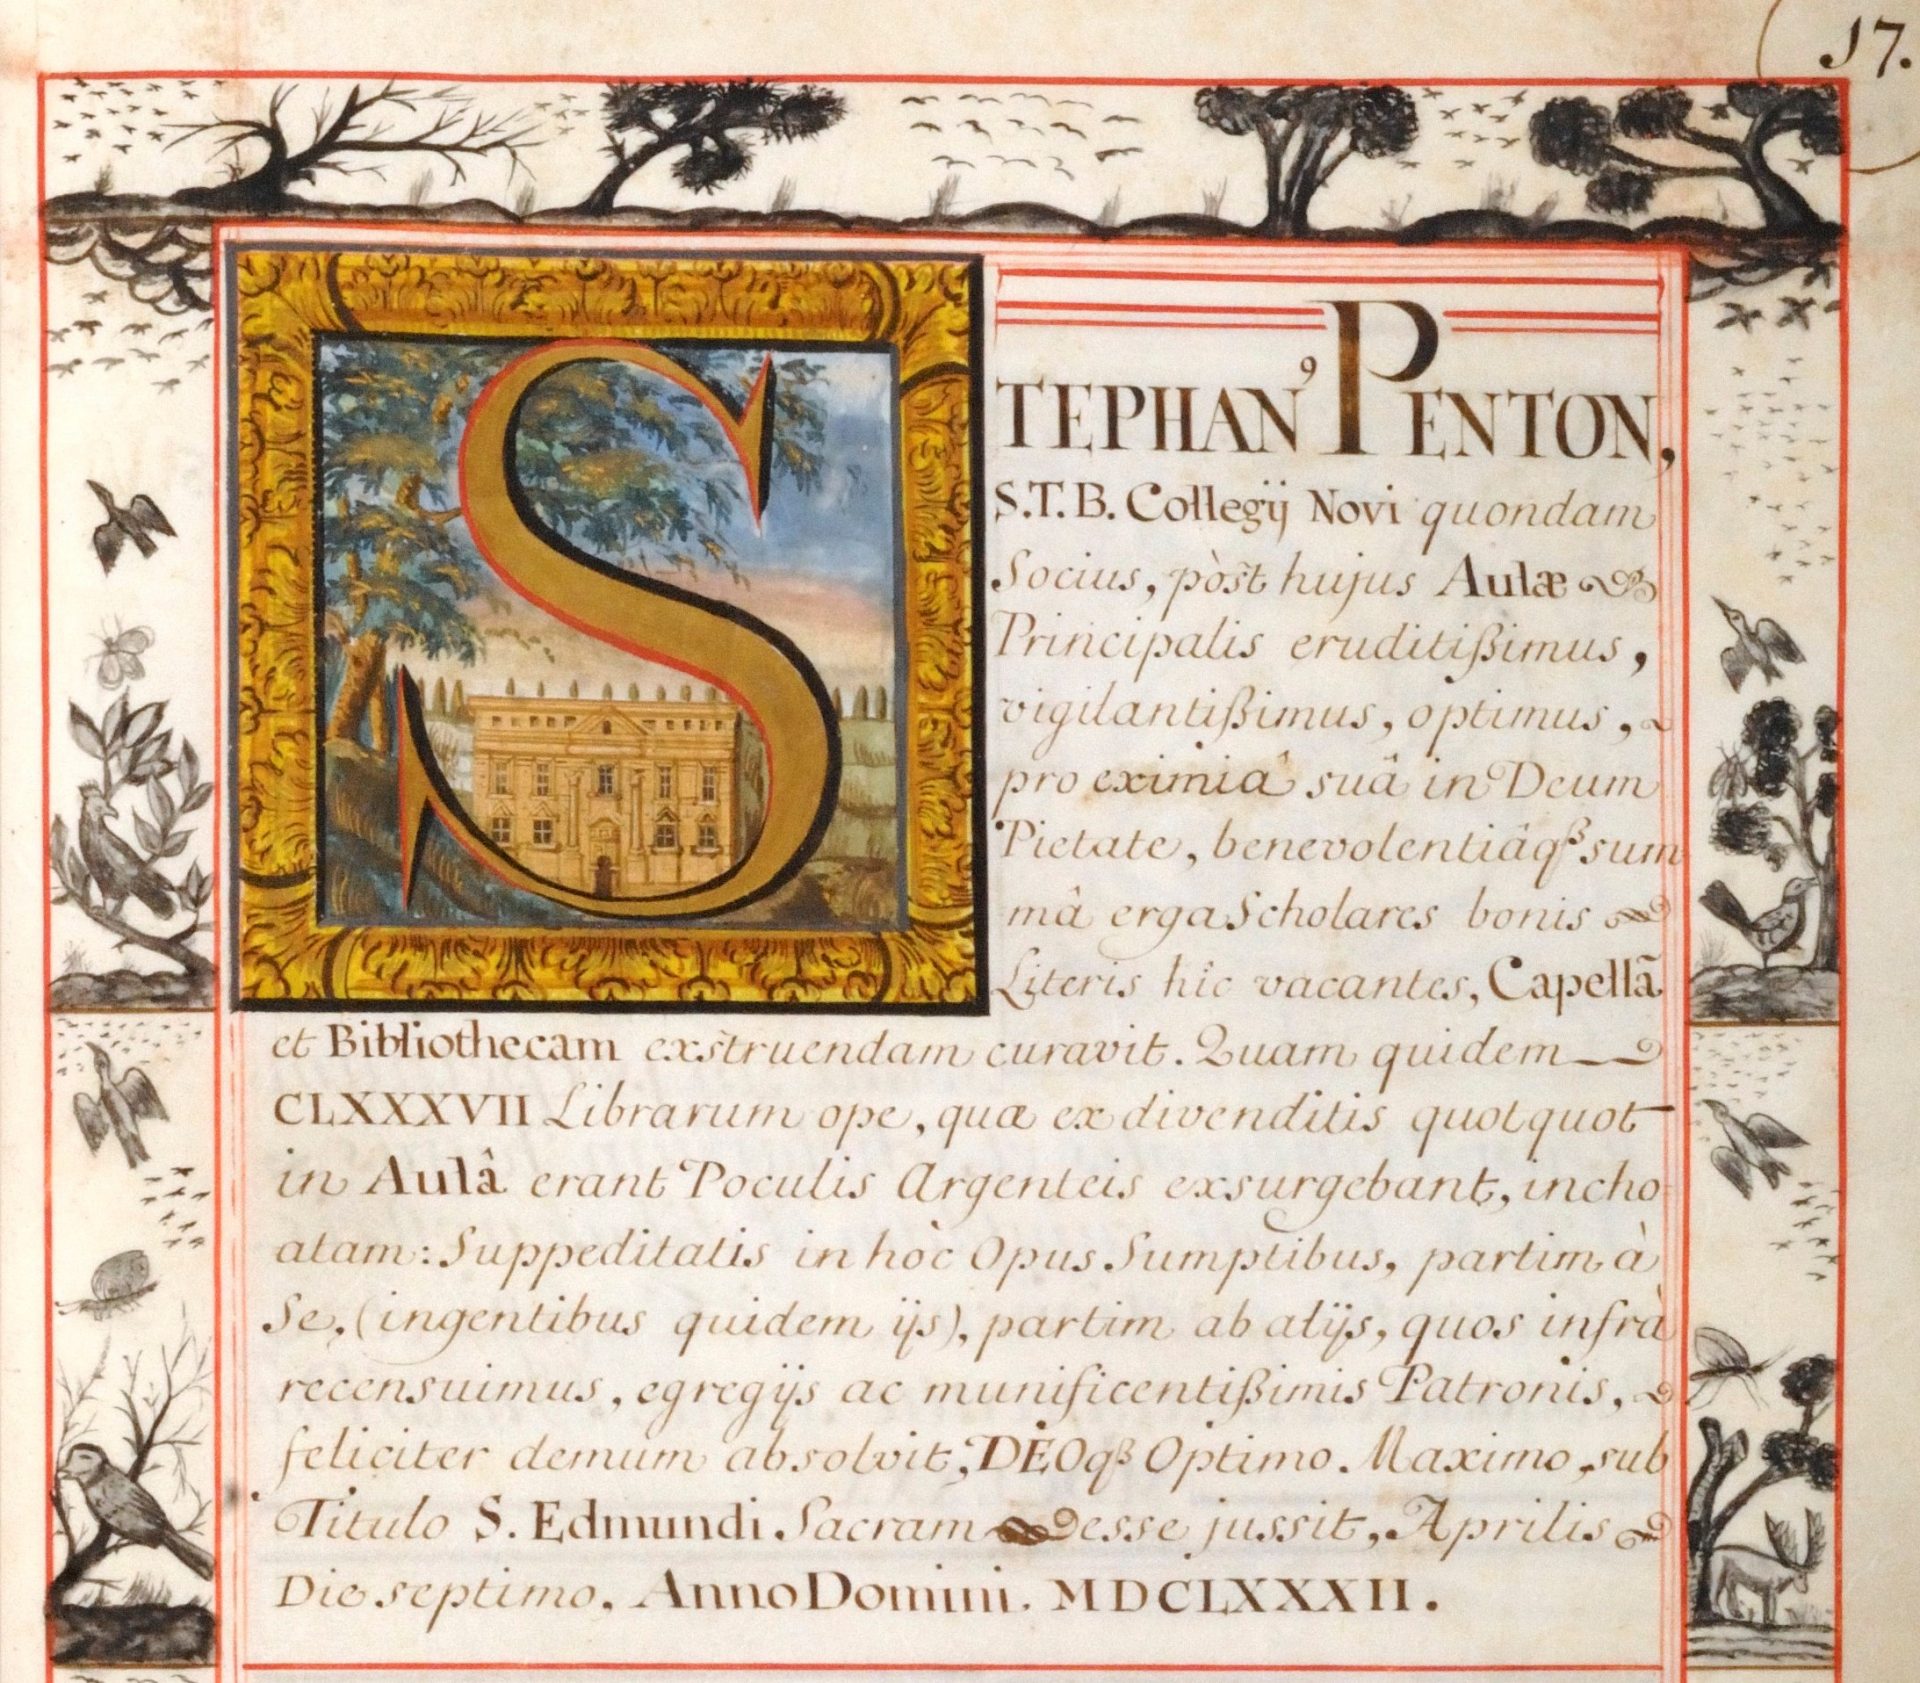 17.
STEPHANꝰ PENTON,
S.T.B. Collegij Novi quondam
Socius, pòst hujus Aulæ
Principalis eruditißimus,
vigilantißimus, optimus,
pro eximiâ suâ in Deum
Pietate, benevolentiâqꝫ sum
mâ erga Scholares bonis
Literis hîc vacantes, Capellã
et Bibliothecam exstruendam curavit. Quam quidem
CLXXXVII Librarum ope, quæ ex divenditis quotquot
in Aulâ erant Poculis Argenteis exsurgebant, incho
atam: Suppeditatis in hòc Opus Sumptibus, partim à
Se, (ingentibus quidem ijs), partim ab alijs, quos infrà
recensuimus, egregijs ac munificentißimis Patronis,
feliciter demum absolvit, DEOqꝫ Optimo. Maximo, sub
Titulo S. Edmundi Sacram esse jussit, Aprilis
Die septimo. Anno Domini. MDCLXXXII.